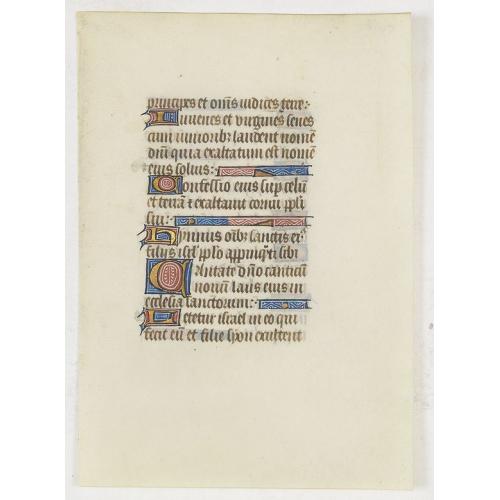 principes et om̄s iudices terre:
Iuuenes et uirgines senes
cum iunioribꝫ laudent nomē
dn̄i quia exaltatum est nomē
eius solius:
Confessio eius sup̱ celū
et terrā ⁊ exaltauit cornu pp̄li
sui:
Hymnus oībꝫ sanctis eiꝰ
filiis isr̄l pp̄lo appinq̄ti sibi
Cantate dn̄o canticū
nouum laus eius in
ecclesia sanctorum:
Letetur israel in eo qui
fecit eū et filie syon exultent